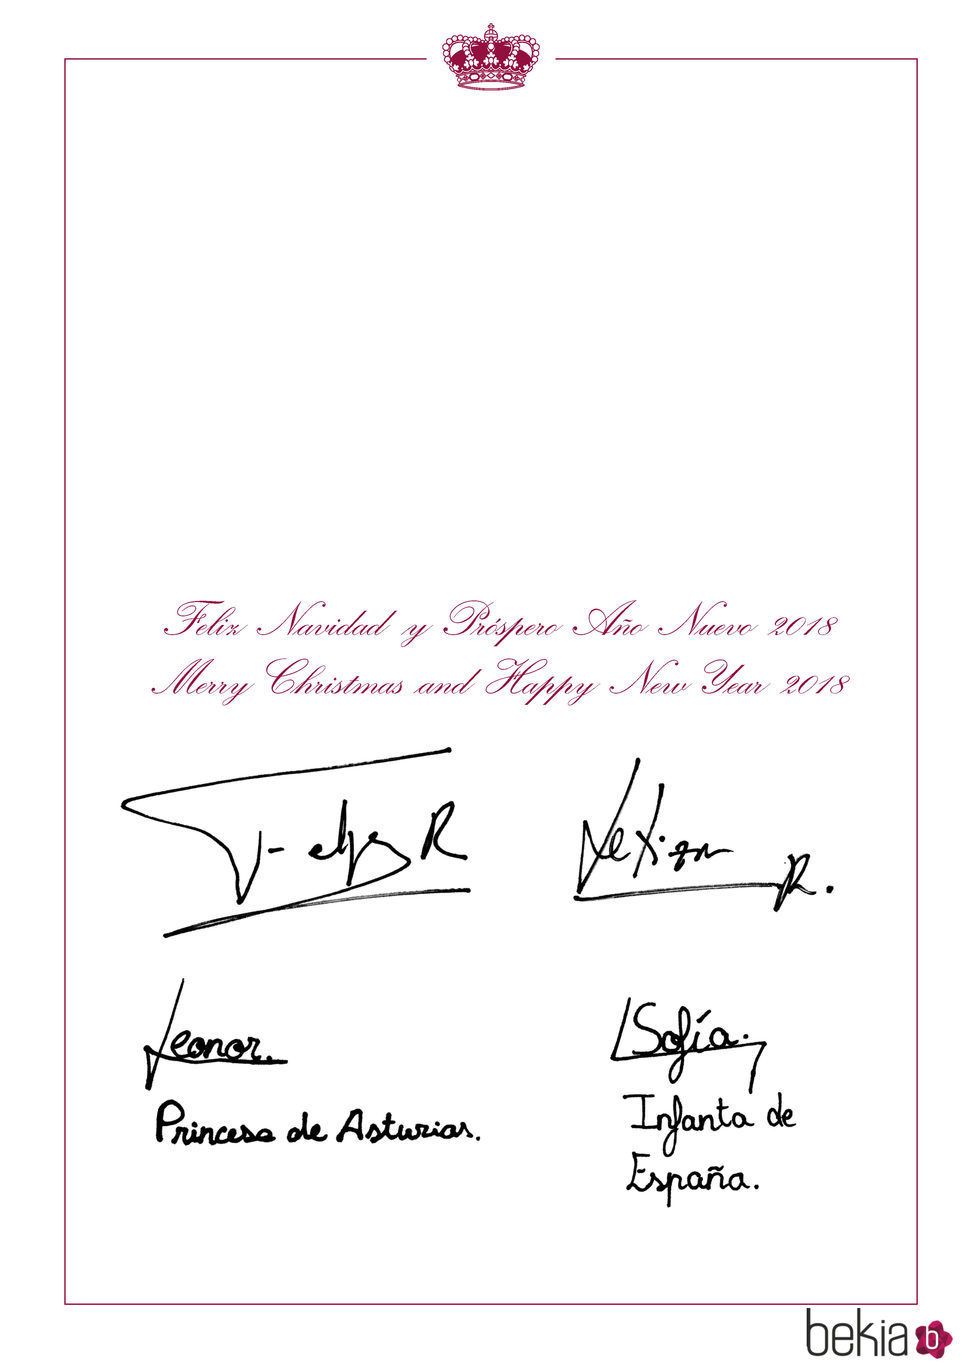 Feliz Navidad y Próspero Año Nuevo 2018
Merry Christmas and Happy New Year 2018
Felipe R
Letizia R.
Leonor.
Princesa de Asturias.
Sofía.
Infanta de
España.
bekia b